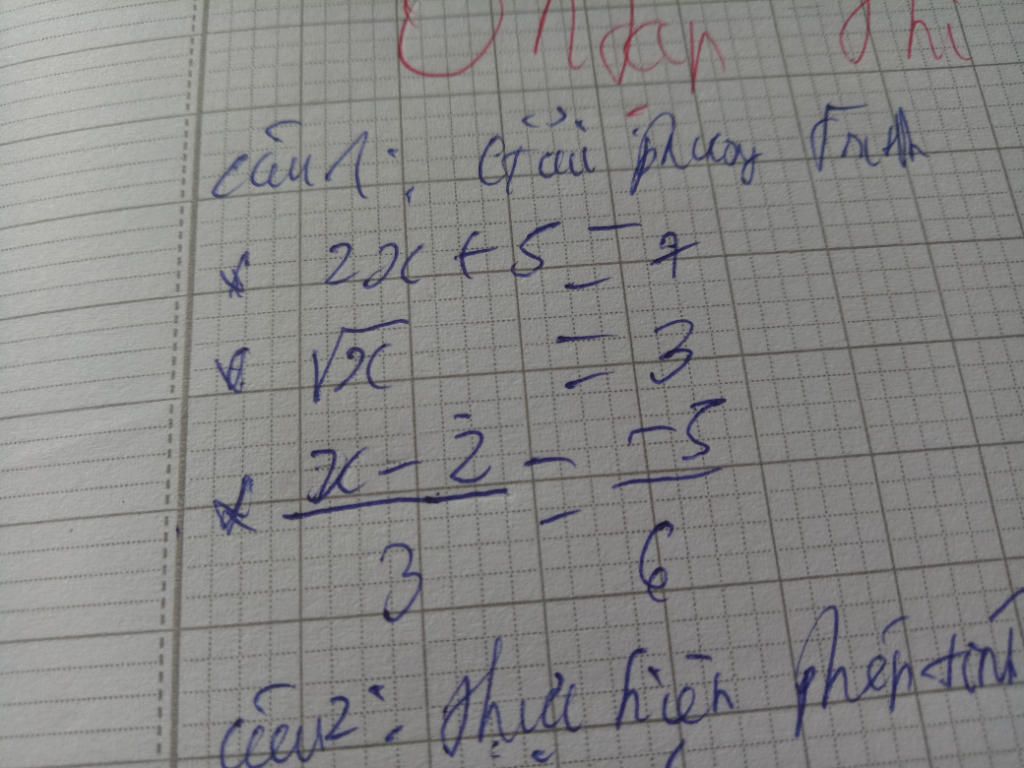 câu 1: Giải phương trình
* 2x + 5 = 7
* √x = 3
* x - 2 / 3 = -5 / 6
câu 2: thực hiện phép tính